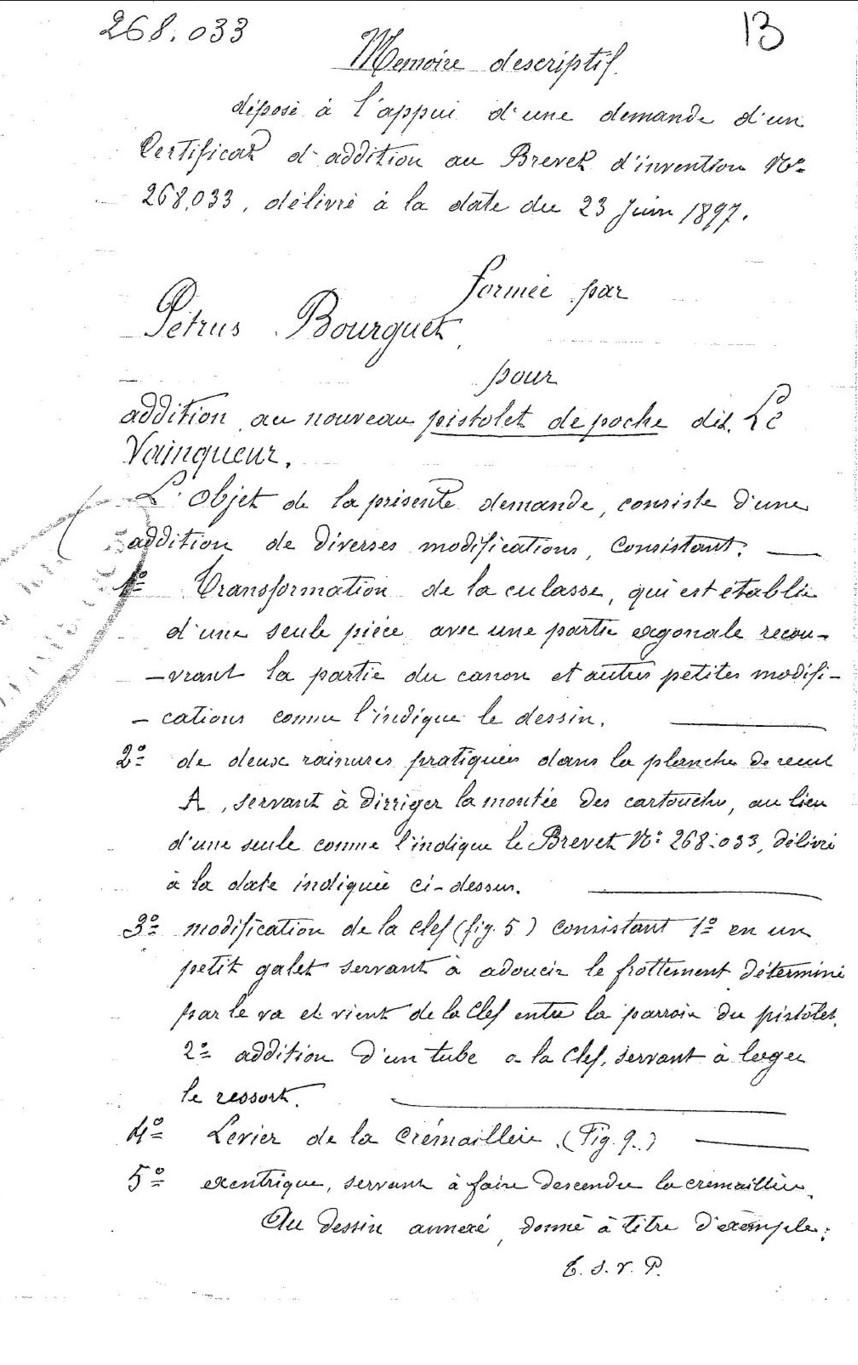 268.033
13
Memoire descriptif.
déposé à l'appui d'une demande d'un
Certificat d'addition au Brevet d'invention No
268,033, délivré à la date du 23 Juin 1897.
formée par
Pétrus Bourguet,
pour
addition au nouveau pistolet de poche dit. Le
Vainqueur.
L'Objet de la présente demande, consiste d'une
addition de diverses modifications, Consistant. —
1º Transformation de la culasse, qui est établie
d'une seule pièce avec une partie exgonale recou-
-vrant la partie du canon et autres petites modifi-
- cations comme l'indique le dessin.
2º de deux rainures pratiquées dans la planche de recul
A, servant à dirriger la montée des cartouches, au lieu
d'une seule comme l'indique le Brevet No 268.033, délivré
à la date indiquée ci-dessus.
3º modification de la clef (fig. 5) consistant 1º en un
petit galet servant à adoucir le frottement déterminé
par le va et vient de la Clef entre la parroix du pistolet.
2º addition d'un tube a la Clef, servant à loger
le ressort.
4º Levier de la Crémaillère. (Fig. 9.)
5º exentrique, servant à faire descendre la cremaillère.
Au dessin annexé, donné à titre d'exemple:
T. S. V. P.